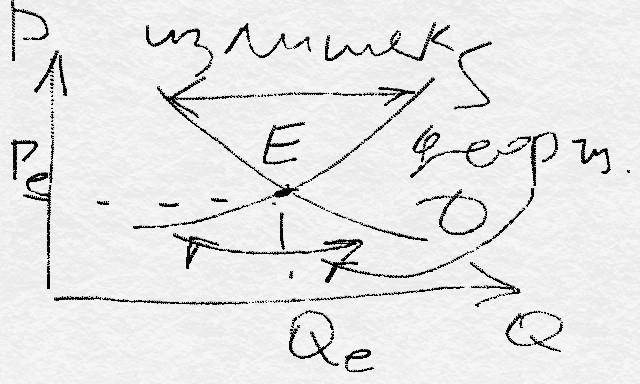 P
излишек
S
E
Pe
дефиц.
D
Qe
Q